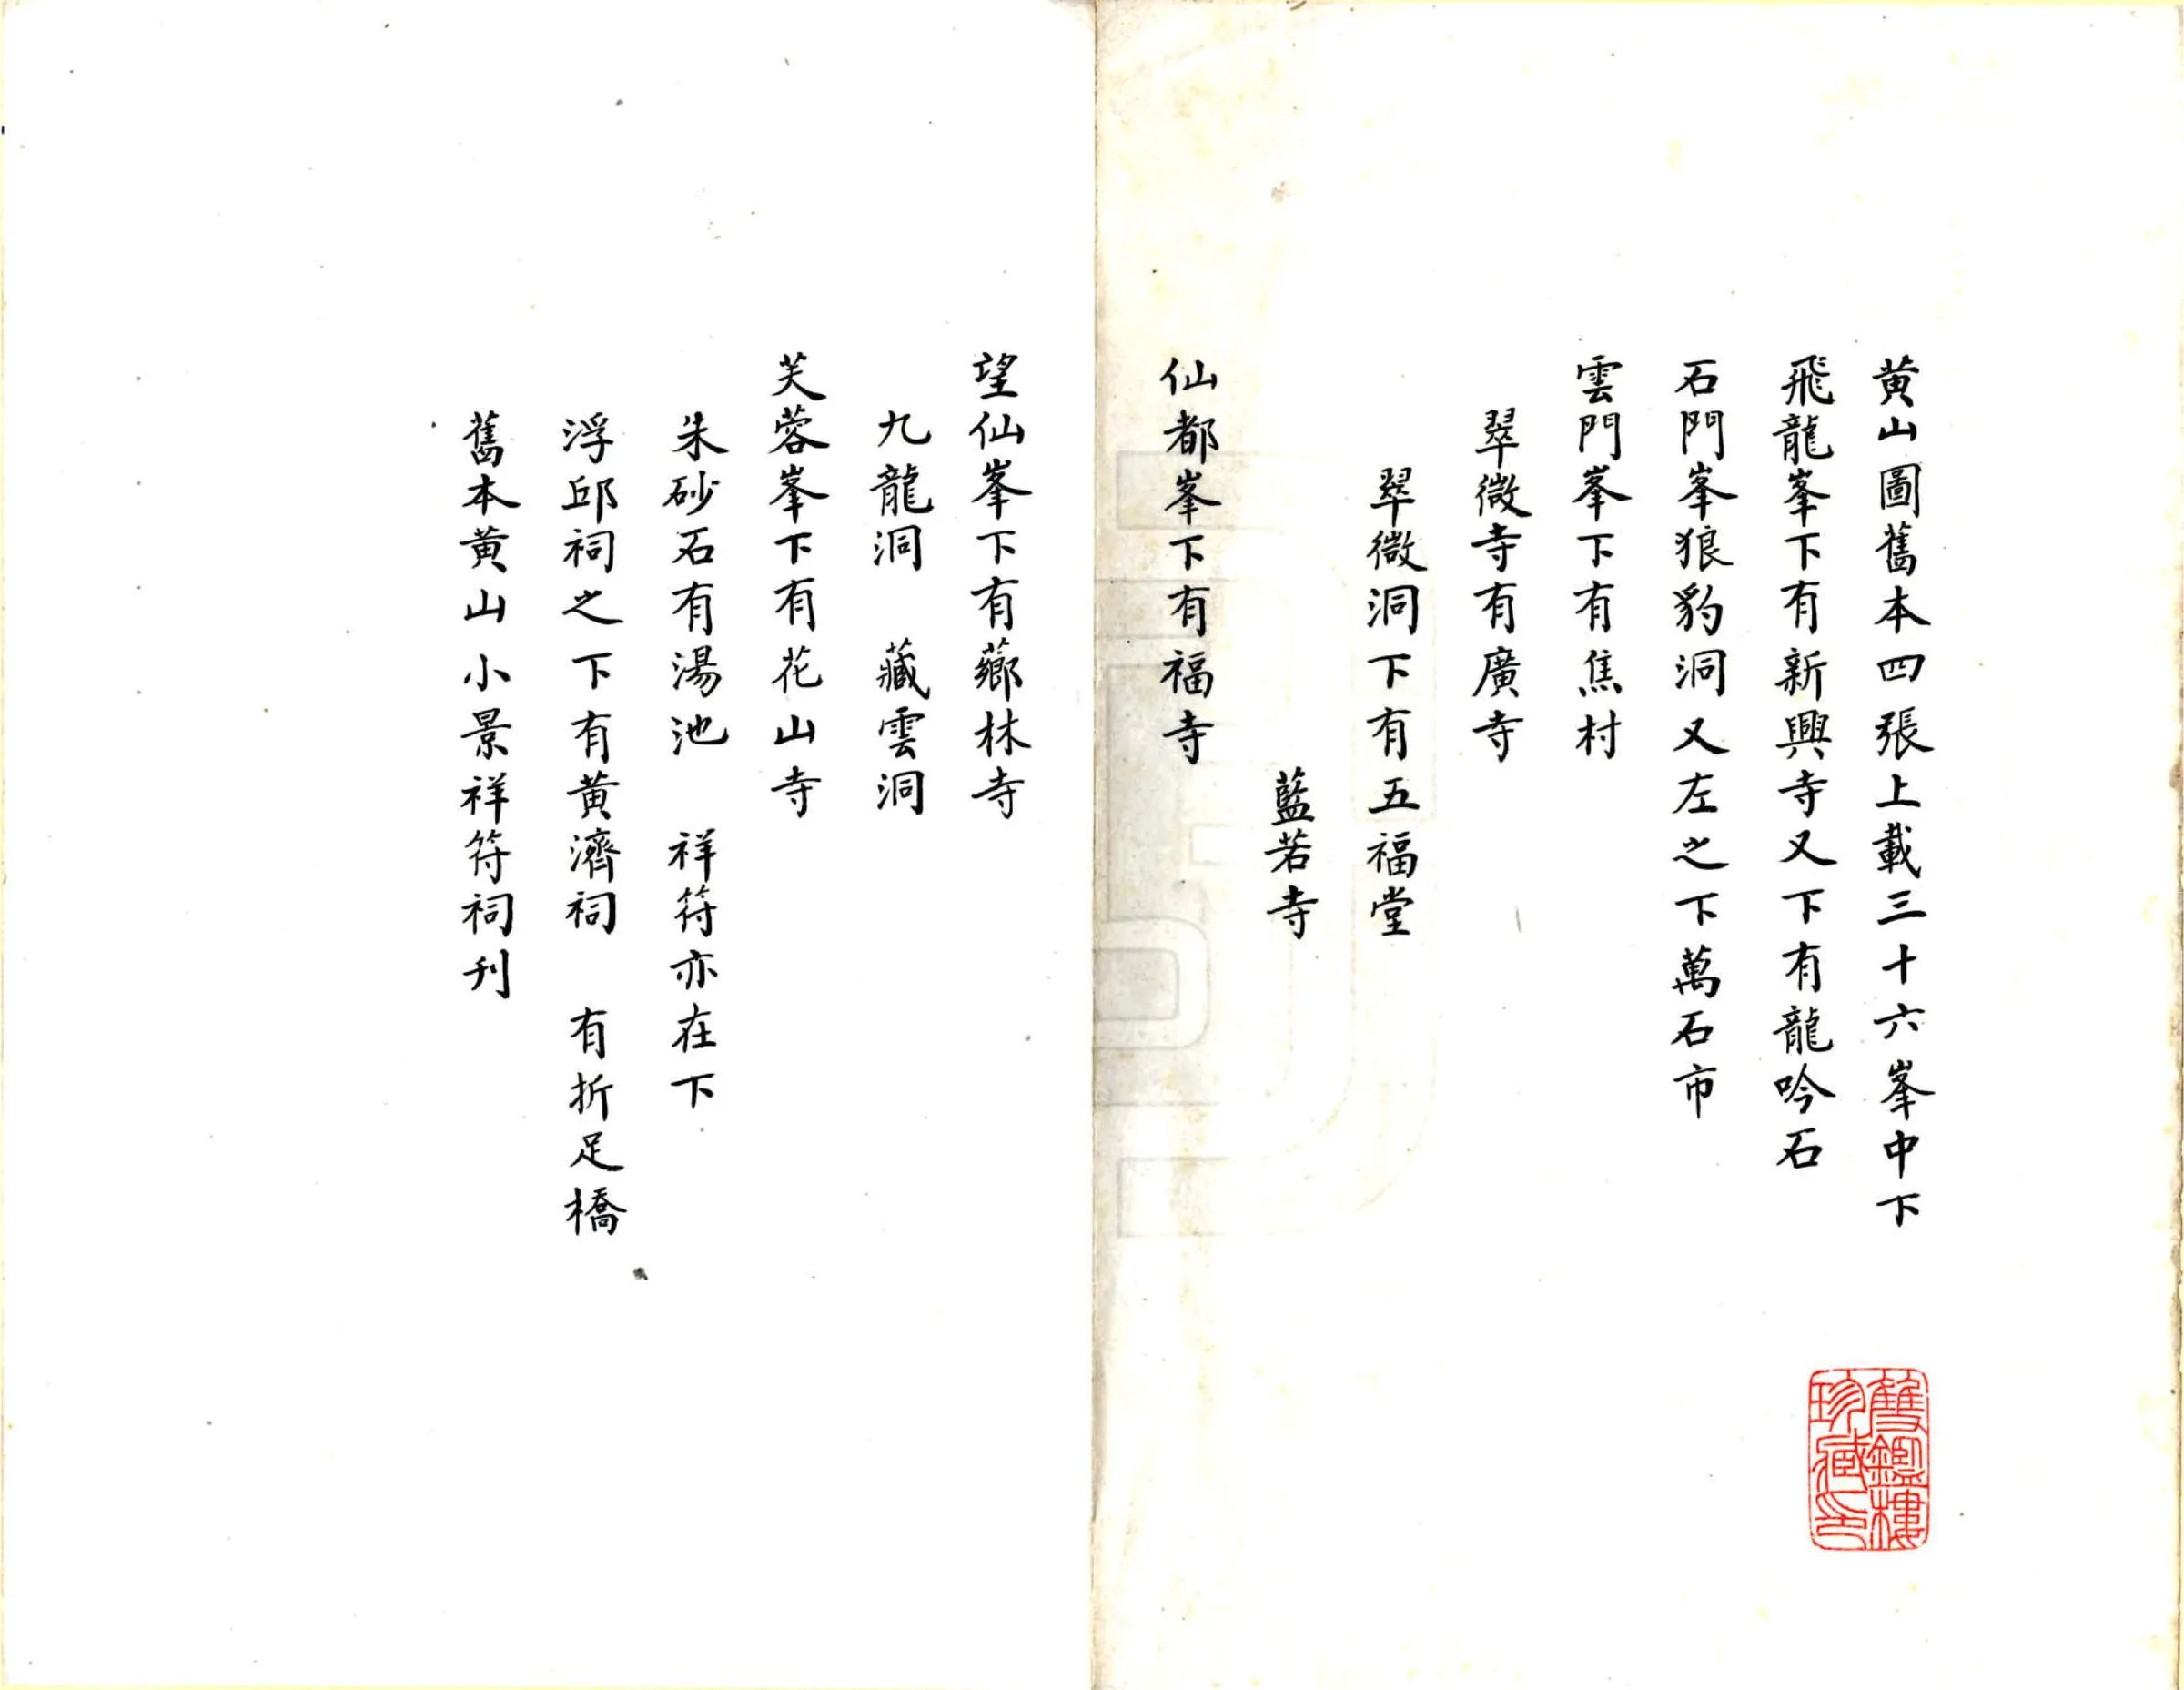 黄山圖舊本四張上載三十六峯中下
飛龍峯下有新興寺又下有龍吟石
石門峯狼豹洞又左之下萬石市
雲門峯下有焦村
翠微寺有廣寺
翠微洞下有五福堂
藍若寺
仙都峯下有福寺
望仙峯下有薌林寺
九龍洞 藏雲洞
芙蓉峯下有花山寺
朱砂石有湯池 祥符亦在下
浮邱祠之下有黄濟祠 有折足橋
舊本黄山小景祥符祠刋
雙鑑樓
珍藏印